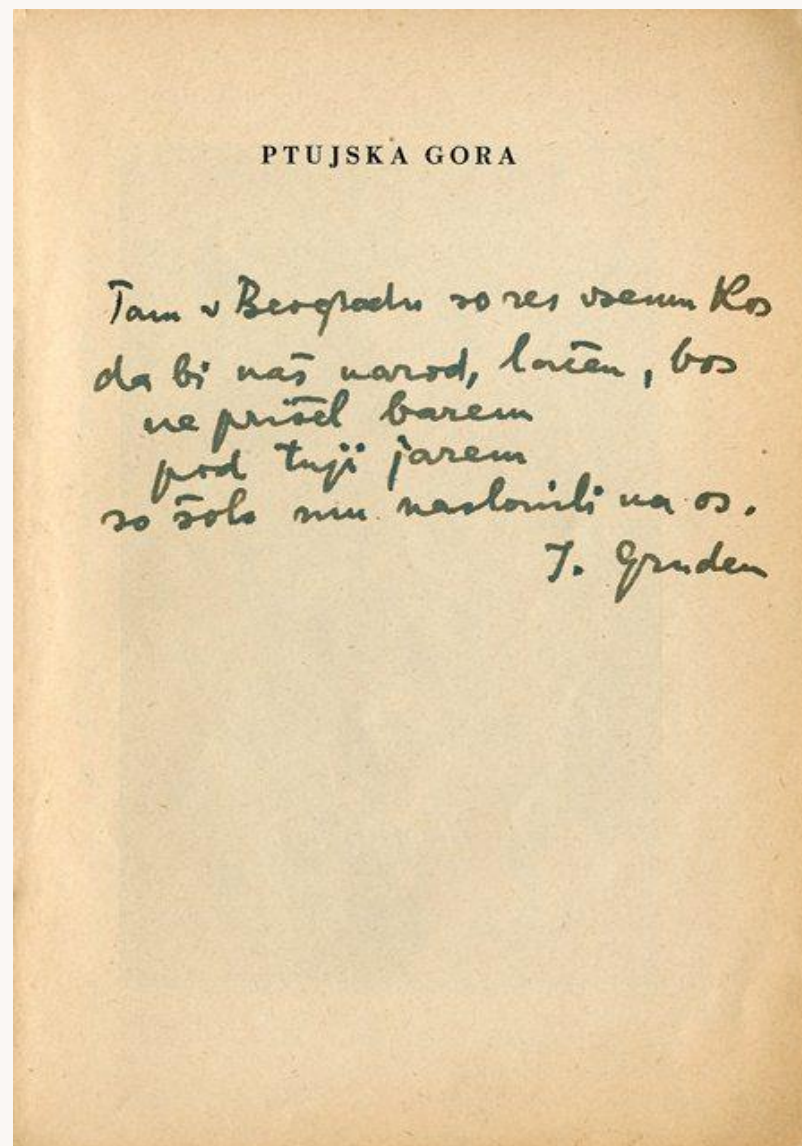 PTUJSKA GORA
Tam v Beogradu so res vsemu kos
da bi naš narod, lačen, bos
ne prišel barem
pod tuji jarem
so šolo mu naslonili na os.
I. Gruden